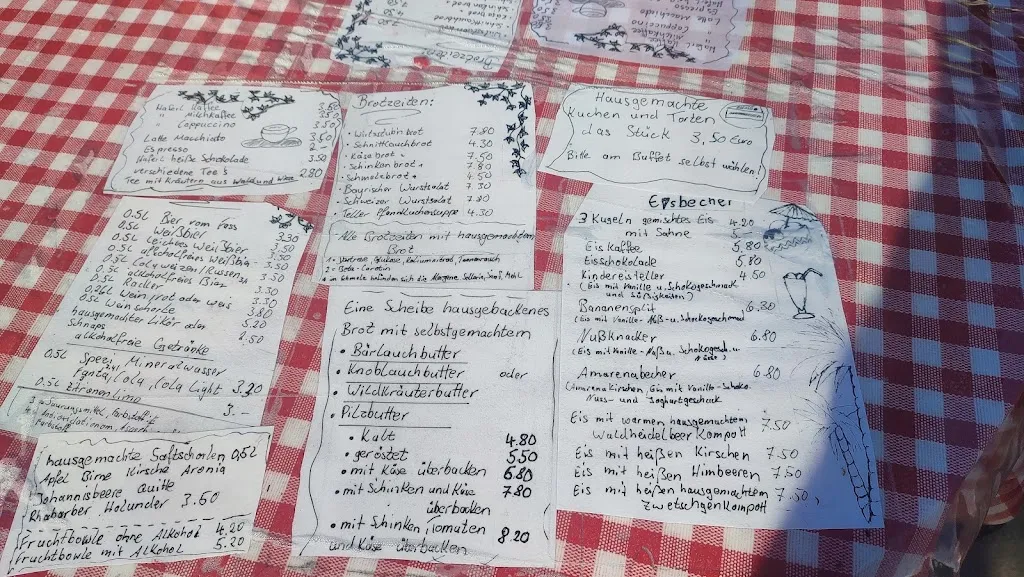 Haferl Kaffee 3.50
" Milchkaffee 3.50
" Cappuccino 3.50
Latte Macchiato 3.60
Espresso 2.-
Haferl heiße Schokolade 3.50
verschiedene Tee's 2.80
Tee mit Kräutern aus Wald und Wiese
Brotzeiten:
• Wirtsstubnbrot 7.80
• Schnittlauchbrot 4.30
• Käsebrot 7.50
• Schinkenbrot 7.80
• Schmalzbrot 4.50
• Bayrischer Wurstsalat 7.30
• Schweizer Wurstsalat 7.80
• Teller Pfannkuchensuppe 4.30
Alle Brotzeiten mit hausgemachtem
Brot
2 = Beta-Carotin
Hausgemachte
Kuchen und Torten
das Stück 3,50 Euro
Bitte am Buffet selbst wählen!
0.5L Bier vom Fass 3.30
0.5L Weißbier 3.50
0.5L Leichtes Weißbier 3.50
0.5L alkoholfreies Weißbier 3.50
0.5L Cola weizen/Russen 3.50
0.5L alkoholfreies Bier
Radler 3.30
0.2L Wein rot oder weis 3.80
0.5L Weinschorle 5.20
hausgemachter Likör oder
Schnaps 2.50
alkoholfreie Getränke
0.5L Spezi, Mineralwasser
Fanta, Cola, Cola Light 3.20
0.5L Zitronenlimo 3.-
hausgemachte Saftschorlen 0,5L
Apfel Birne Kirsche Aronia
Johannisbeere Quitte
Rhabarber Holunder 3.60
Fruchtbowle ohne Alkohol 4.20
Fruchtbowle mit Alkohol 5.20
Eine Scheibe hausgebackenes
Brot mit selbstgemachtem
• Bärlauchbutter
• Knoblauchbutter oder
• Wildkräuterbutter
• Pilzbutter
• kalt 4.80
• geröstet 5.50
• mit Käse überbacken 6.80
• mit Schinken und Käse 7.80
überbacken
• mit Schinken Tomaten
und Käse überbacken 8.20
Eisbecher
3 Kugeln gemischtes Eis 4.20
mit Sahne 5.-
Eiskaffee 5.80
Eisschokolade 5.80
Kindereisteller 4.50
(Eis mit Vanille u. Schokogeschmack
und Süßigkeiten)
Bananensplit 6.80
(Eis mit Vanille- Nuß- u. Schokogeschmack
Nußknacker 6.80
(Eis mit Vanille- Nuß u. Schokogesch. u.
Amarenabecher 6.80
(Amarena Kirschen, Eis mit Vanille- Schoko-
Nuss- und Joghurtgeschack
Eis mit warmen hausgemachtem 7.50
Waldheidelbeer Kompott
Eis mit heißen Kirschen 7.50
Eis mit heißen Himbeeren 7.50
Eis mit heißen hausgemachtem 7.50,
Zwetschgenkompott